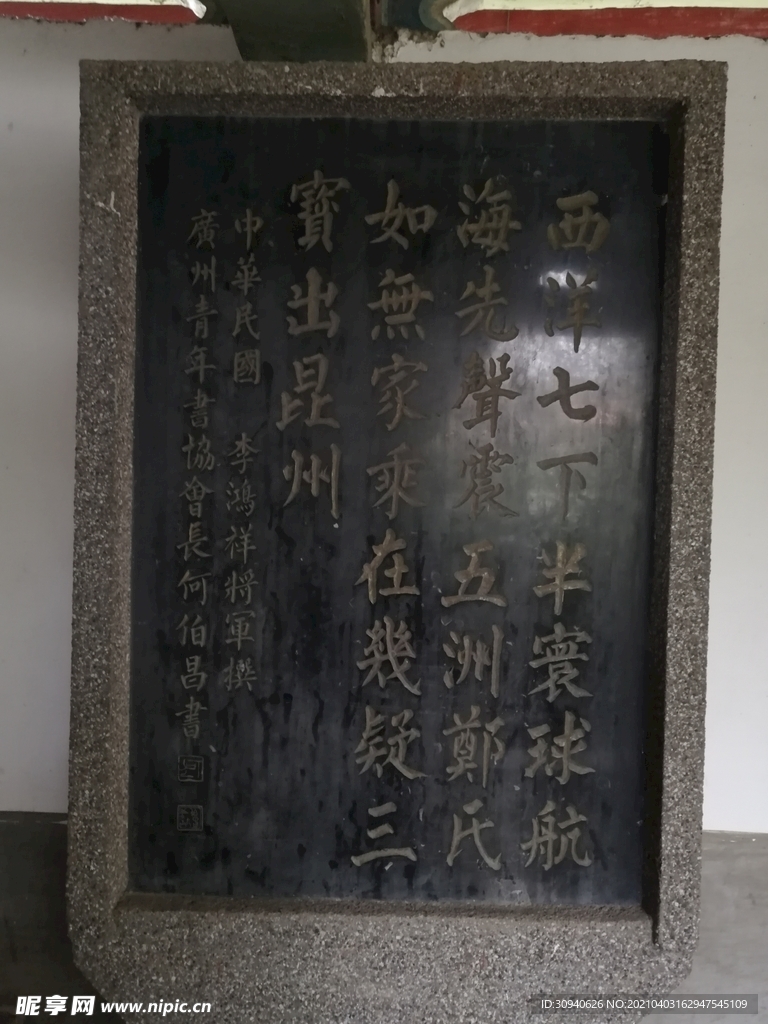 西洋七下半寰球航
海先聲震五洲鄭氏
如無家乘在幾疑三
寶出昆州
中華民國 李鴻祥將軍撰
廣州青年書協會長何伯昌書
昵享网 www.nipic.cn
ID:30940626 NO:20210403162947545109